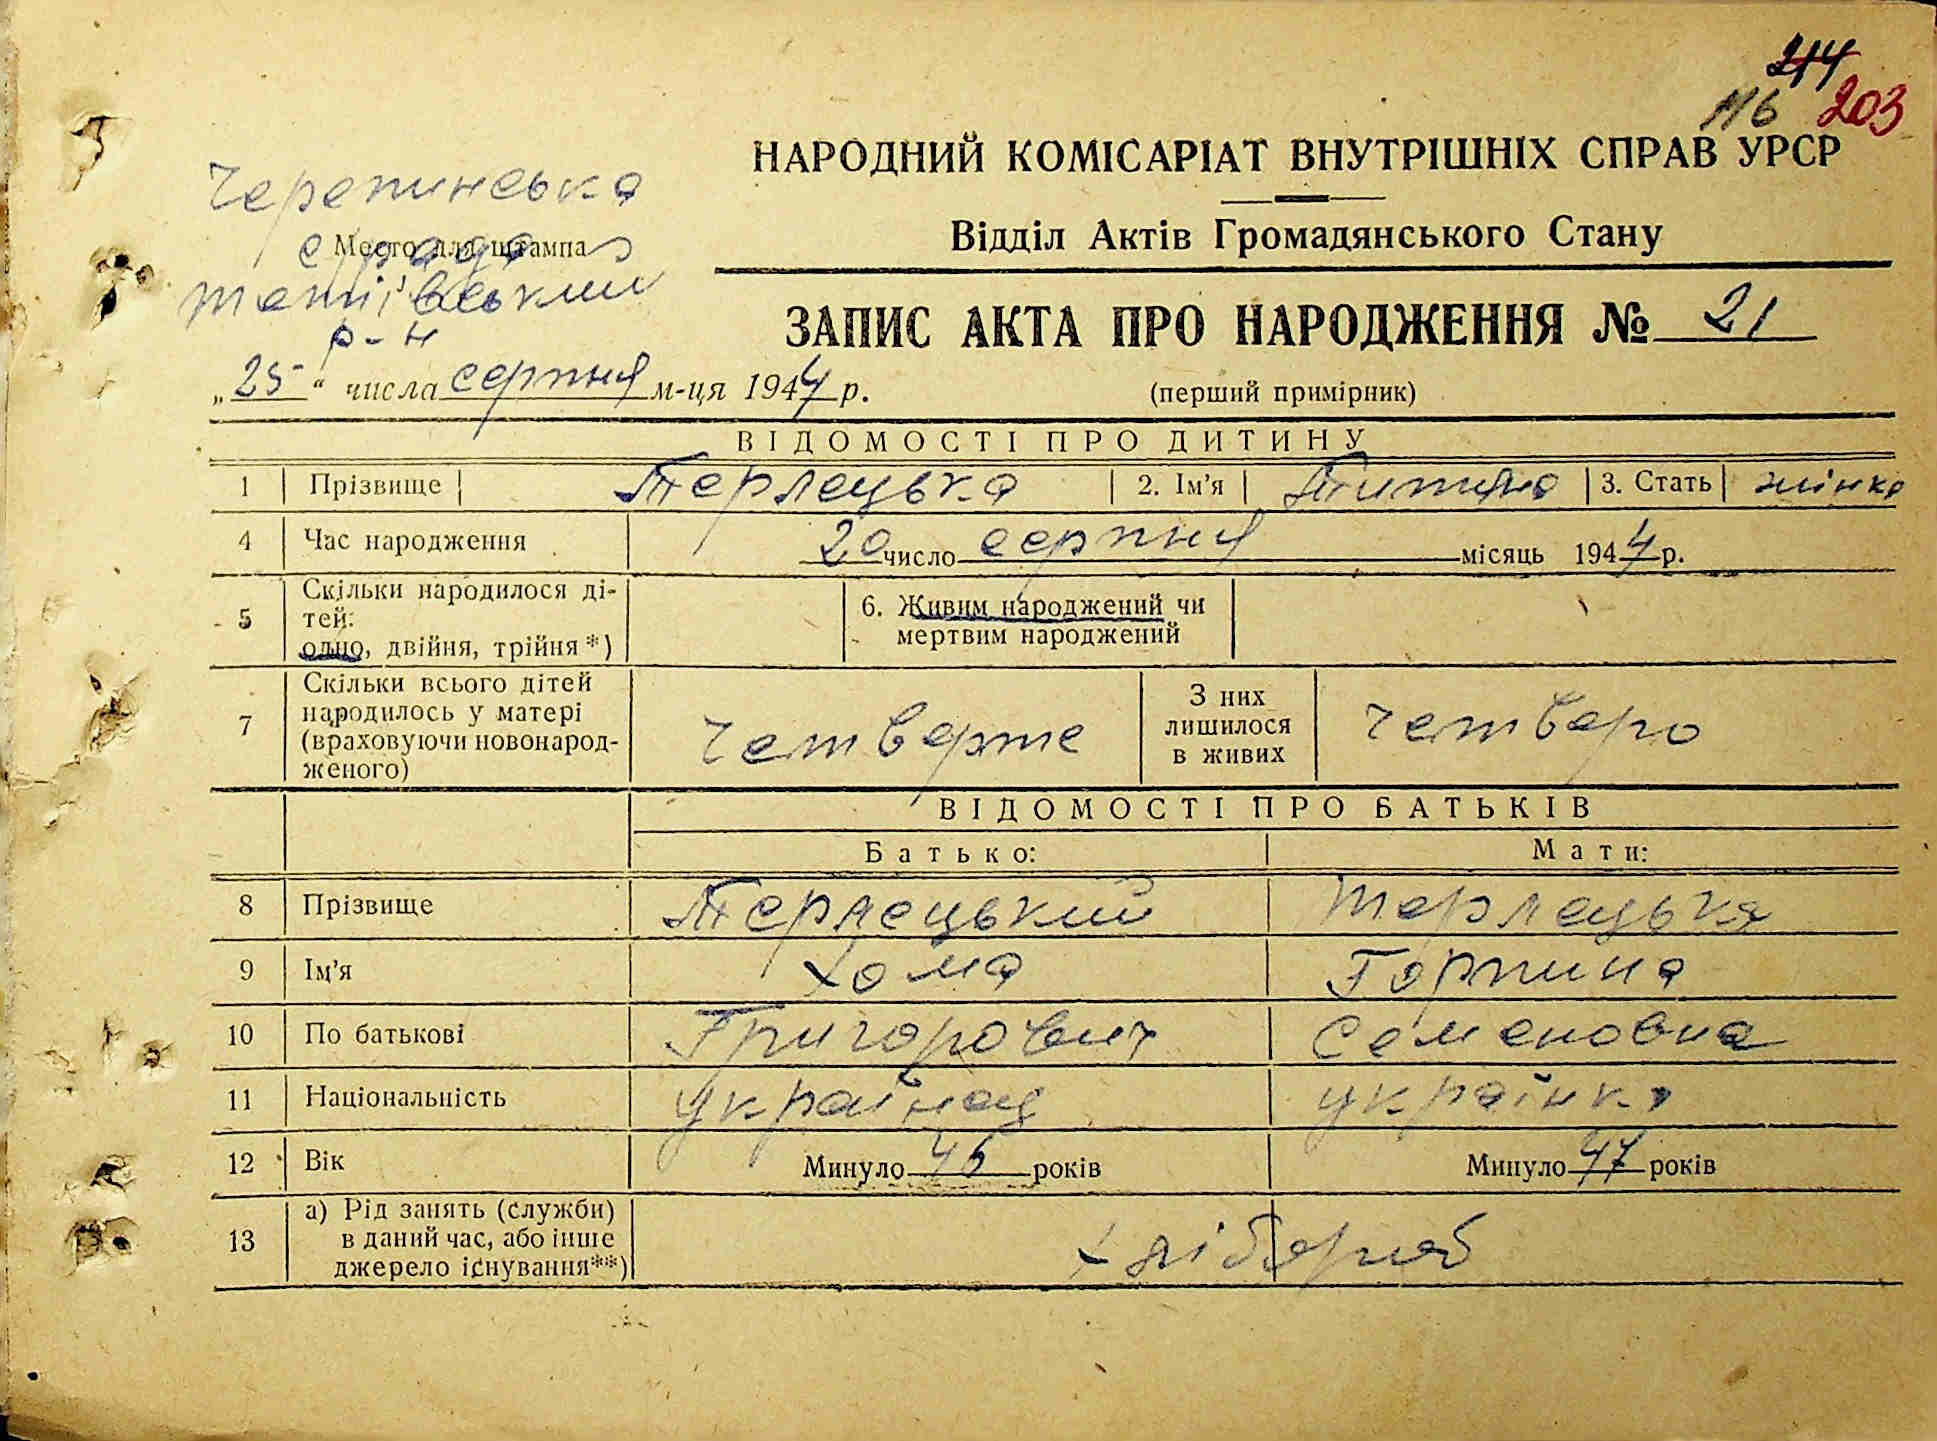 244
116 203
НАРОДНИЙ КОМІСАРІАТ ВНУТРІШНІХ СПРАВ УРСР
Черепинська
Відділ Актів Громадянського Стану
Место для штампа
с рада
тетіївський
р-н
ЗАПИС АКТА ПРО НАРОДЖЕННЯ № 21
„25“ числа серпня м-ця 1944 р.
(перший примірник)
ВІДОМОСТІ ПРО ДИТИНУ
1 Прізвище Терлецька 2. Ім’я 3. Стать жінка
4 Час народження 20 число серпня місяць 1944 р.
5 Скільки народилося ді-
тей:
одно, двійня, трійня*)
6. Живим народжений чи
мертвим народжений
7 Скільки всього дітей
народилось у матері
(враховуючи новонарод-
женого)
четверте
З них
лишилося
в живих
четверо
ВІДОМОСТІ ПРО БАТЬКІВ
Батько: Мати:
8 Прізвище Терлецький Терлецька
9 Ім’я Хома Горпина
10 По батькові Григорович Семеновна
11 Національність українец українка
12 Вік Минуло 46 років Минуло 47 років
13 а) Рід занять (служби)
в даний час, або інше
джерело існування**)
хлібороб